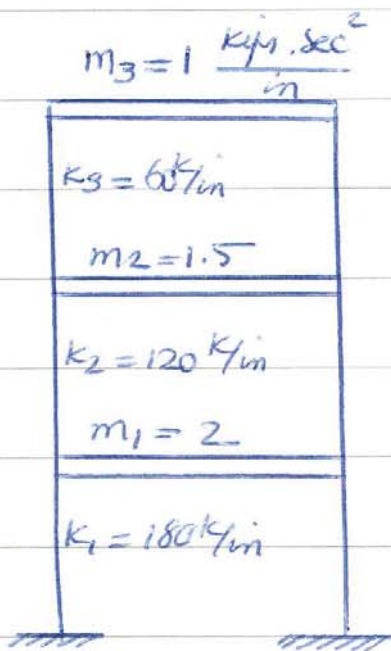 m₃ = 1 kips.sec²/in
K₃ = 60 K/in
m₂ = 1.5
K₂ = 120 K/in
m₁ = 2
K₁ = 180 K/in